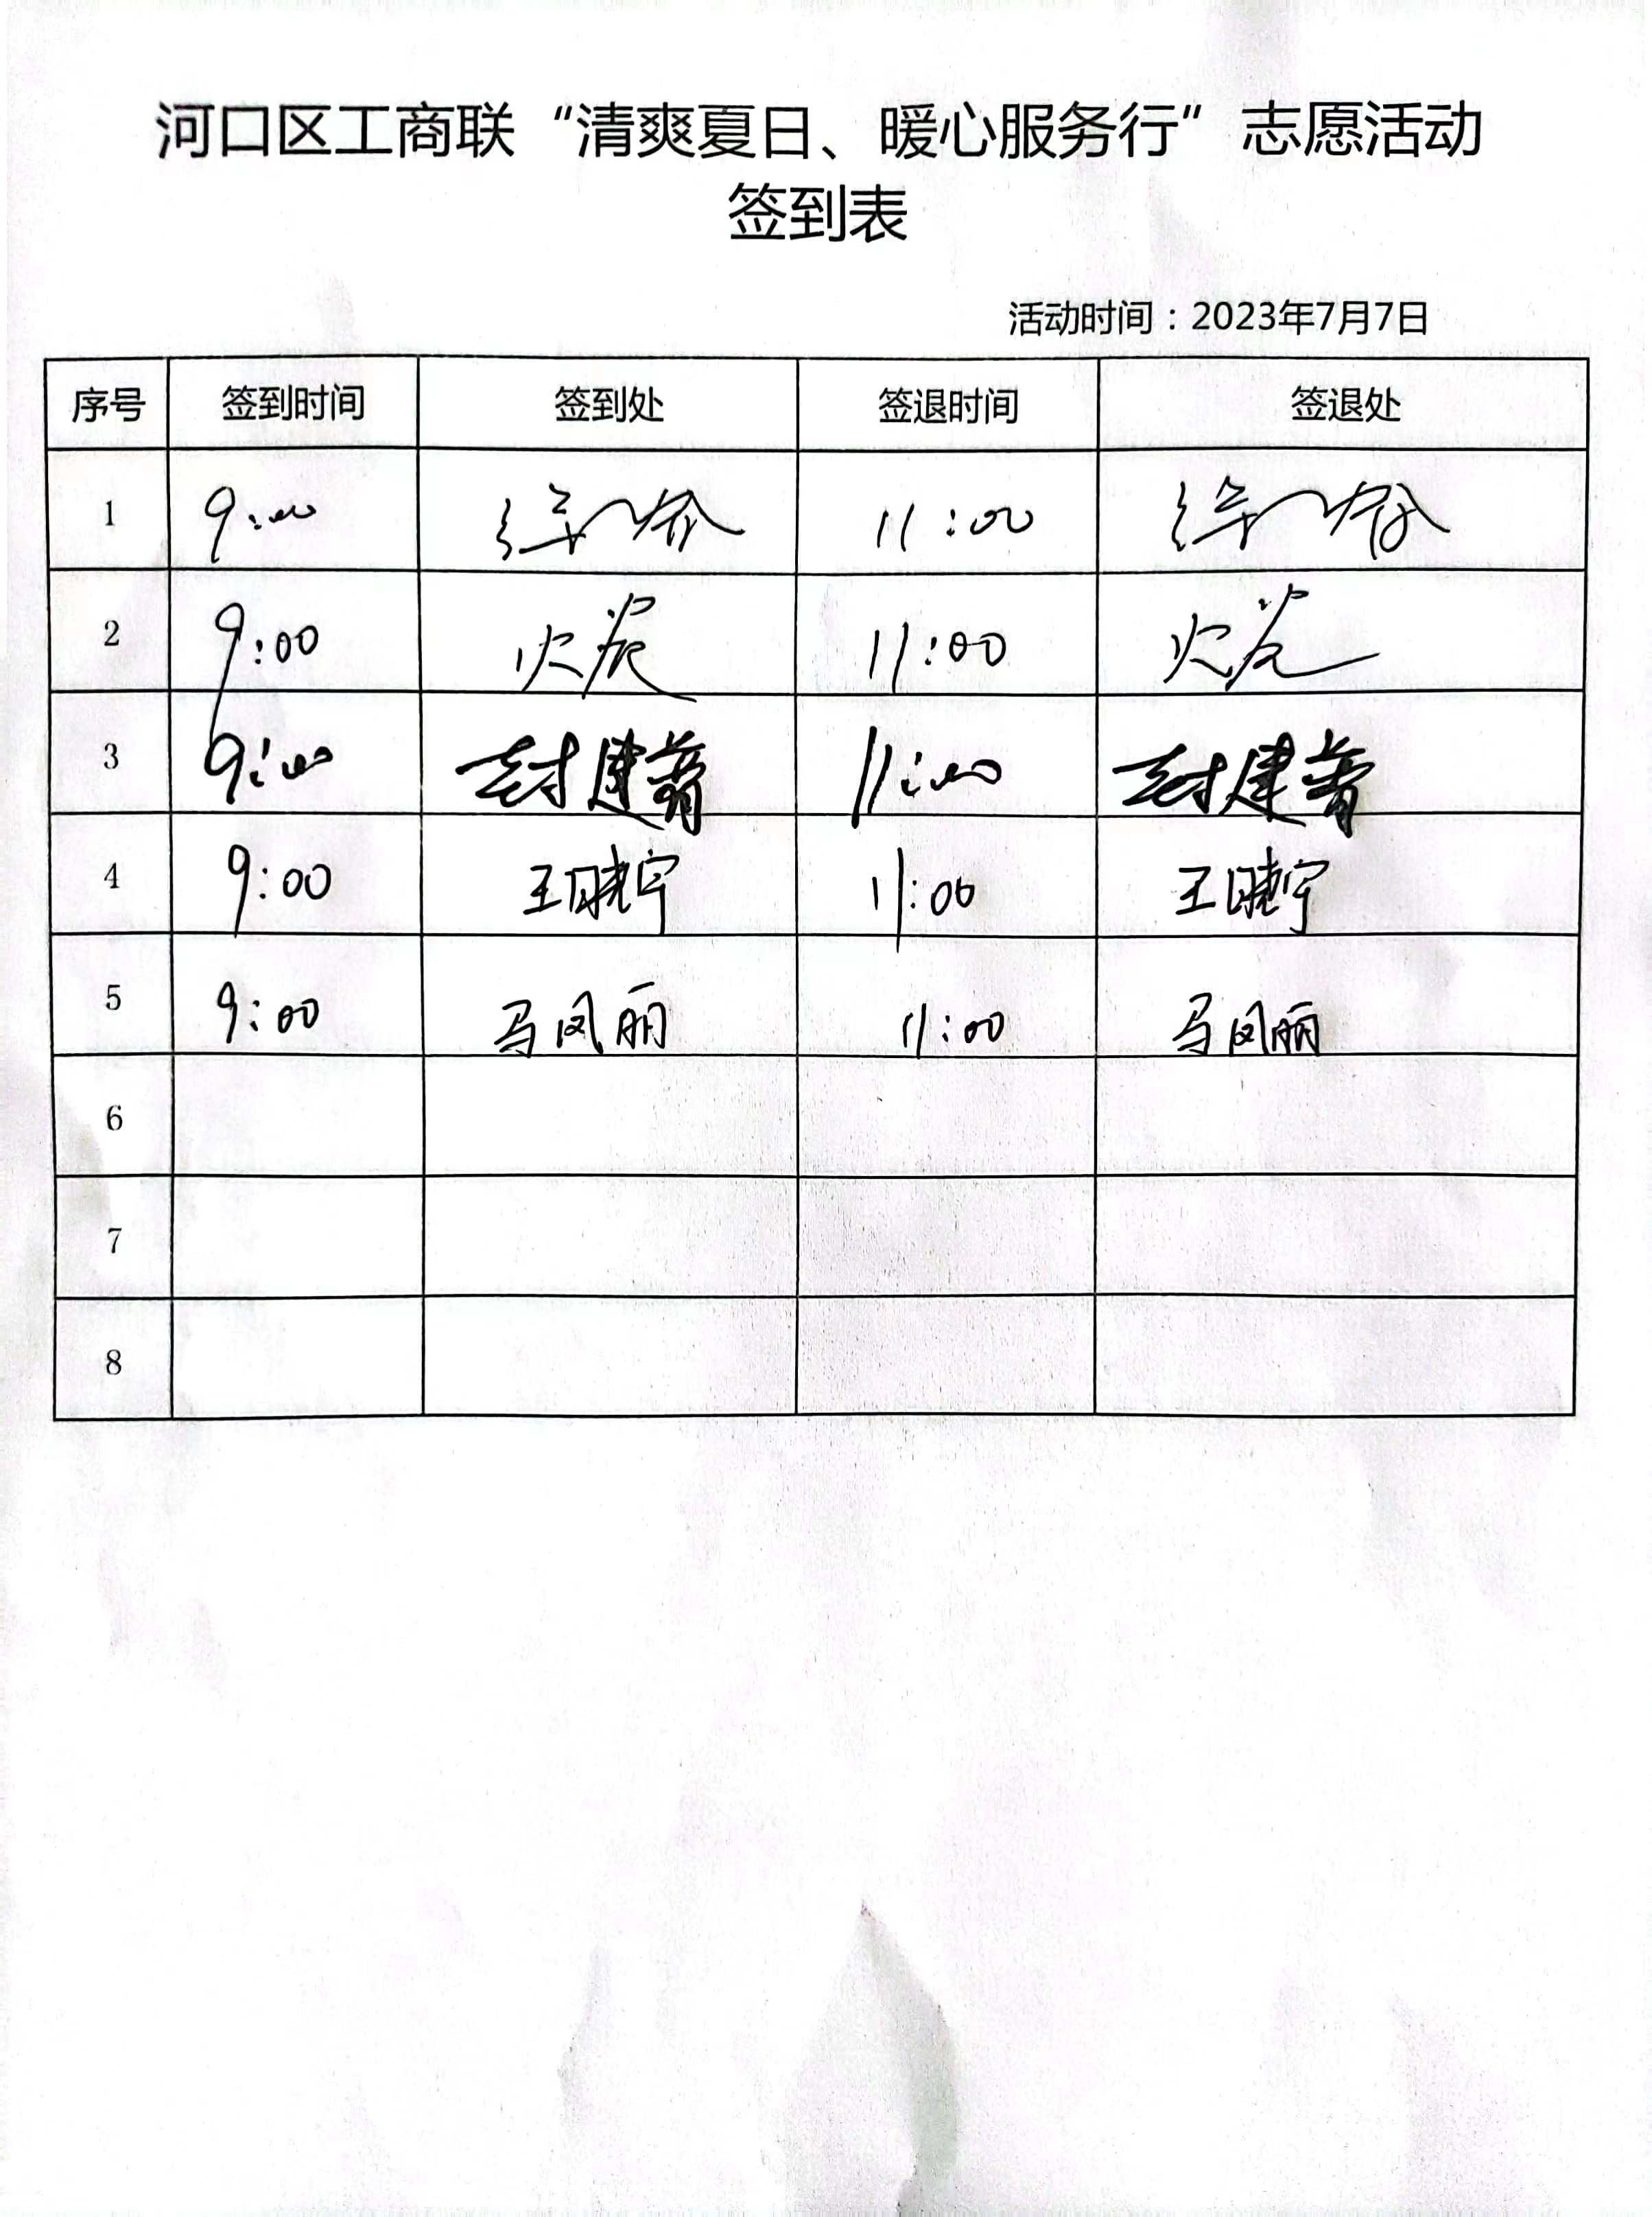 河口区工商联“清爽夏日、暖心服务行”志愿活动
签到表
活动时间：2023年7月7日
序号 签到时间 签到处 签退时间 签退处
1 9:00 11:00
2 9:00 11:00
3 9:00 封建 11:00 封建
4 9:00 王晓宁 11:00 王晓宁
5 9:00 马凤丽 11:00 马凤丽
6
7
8